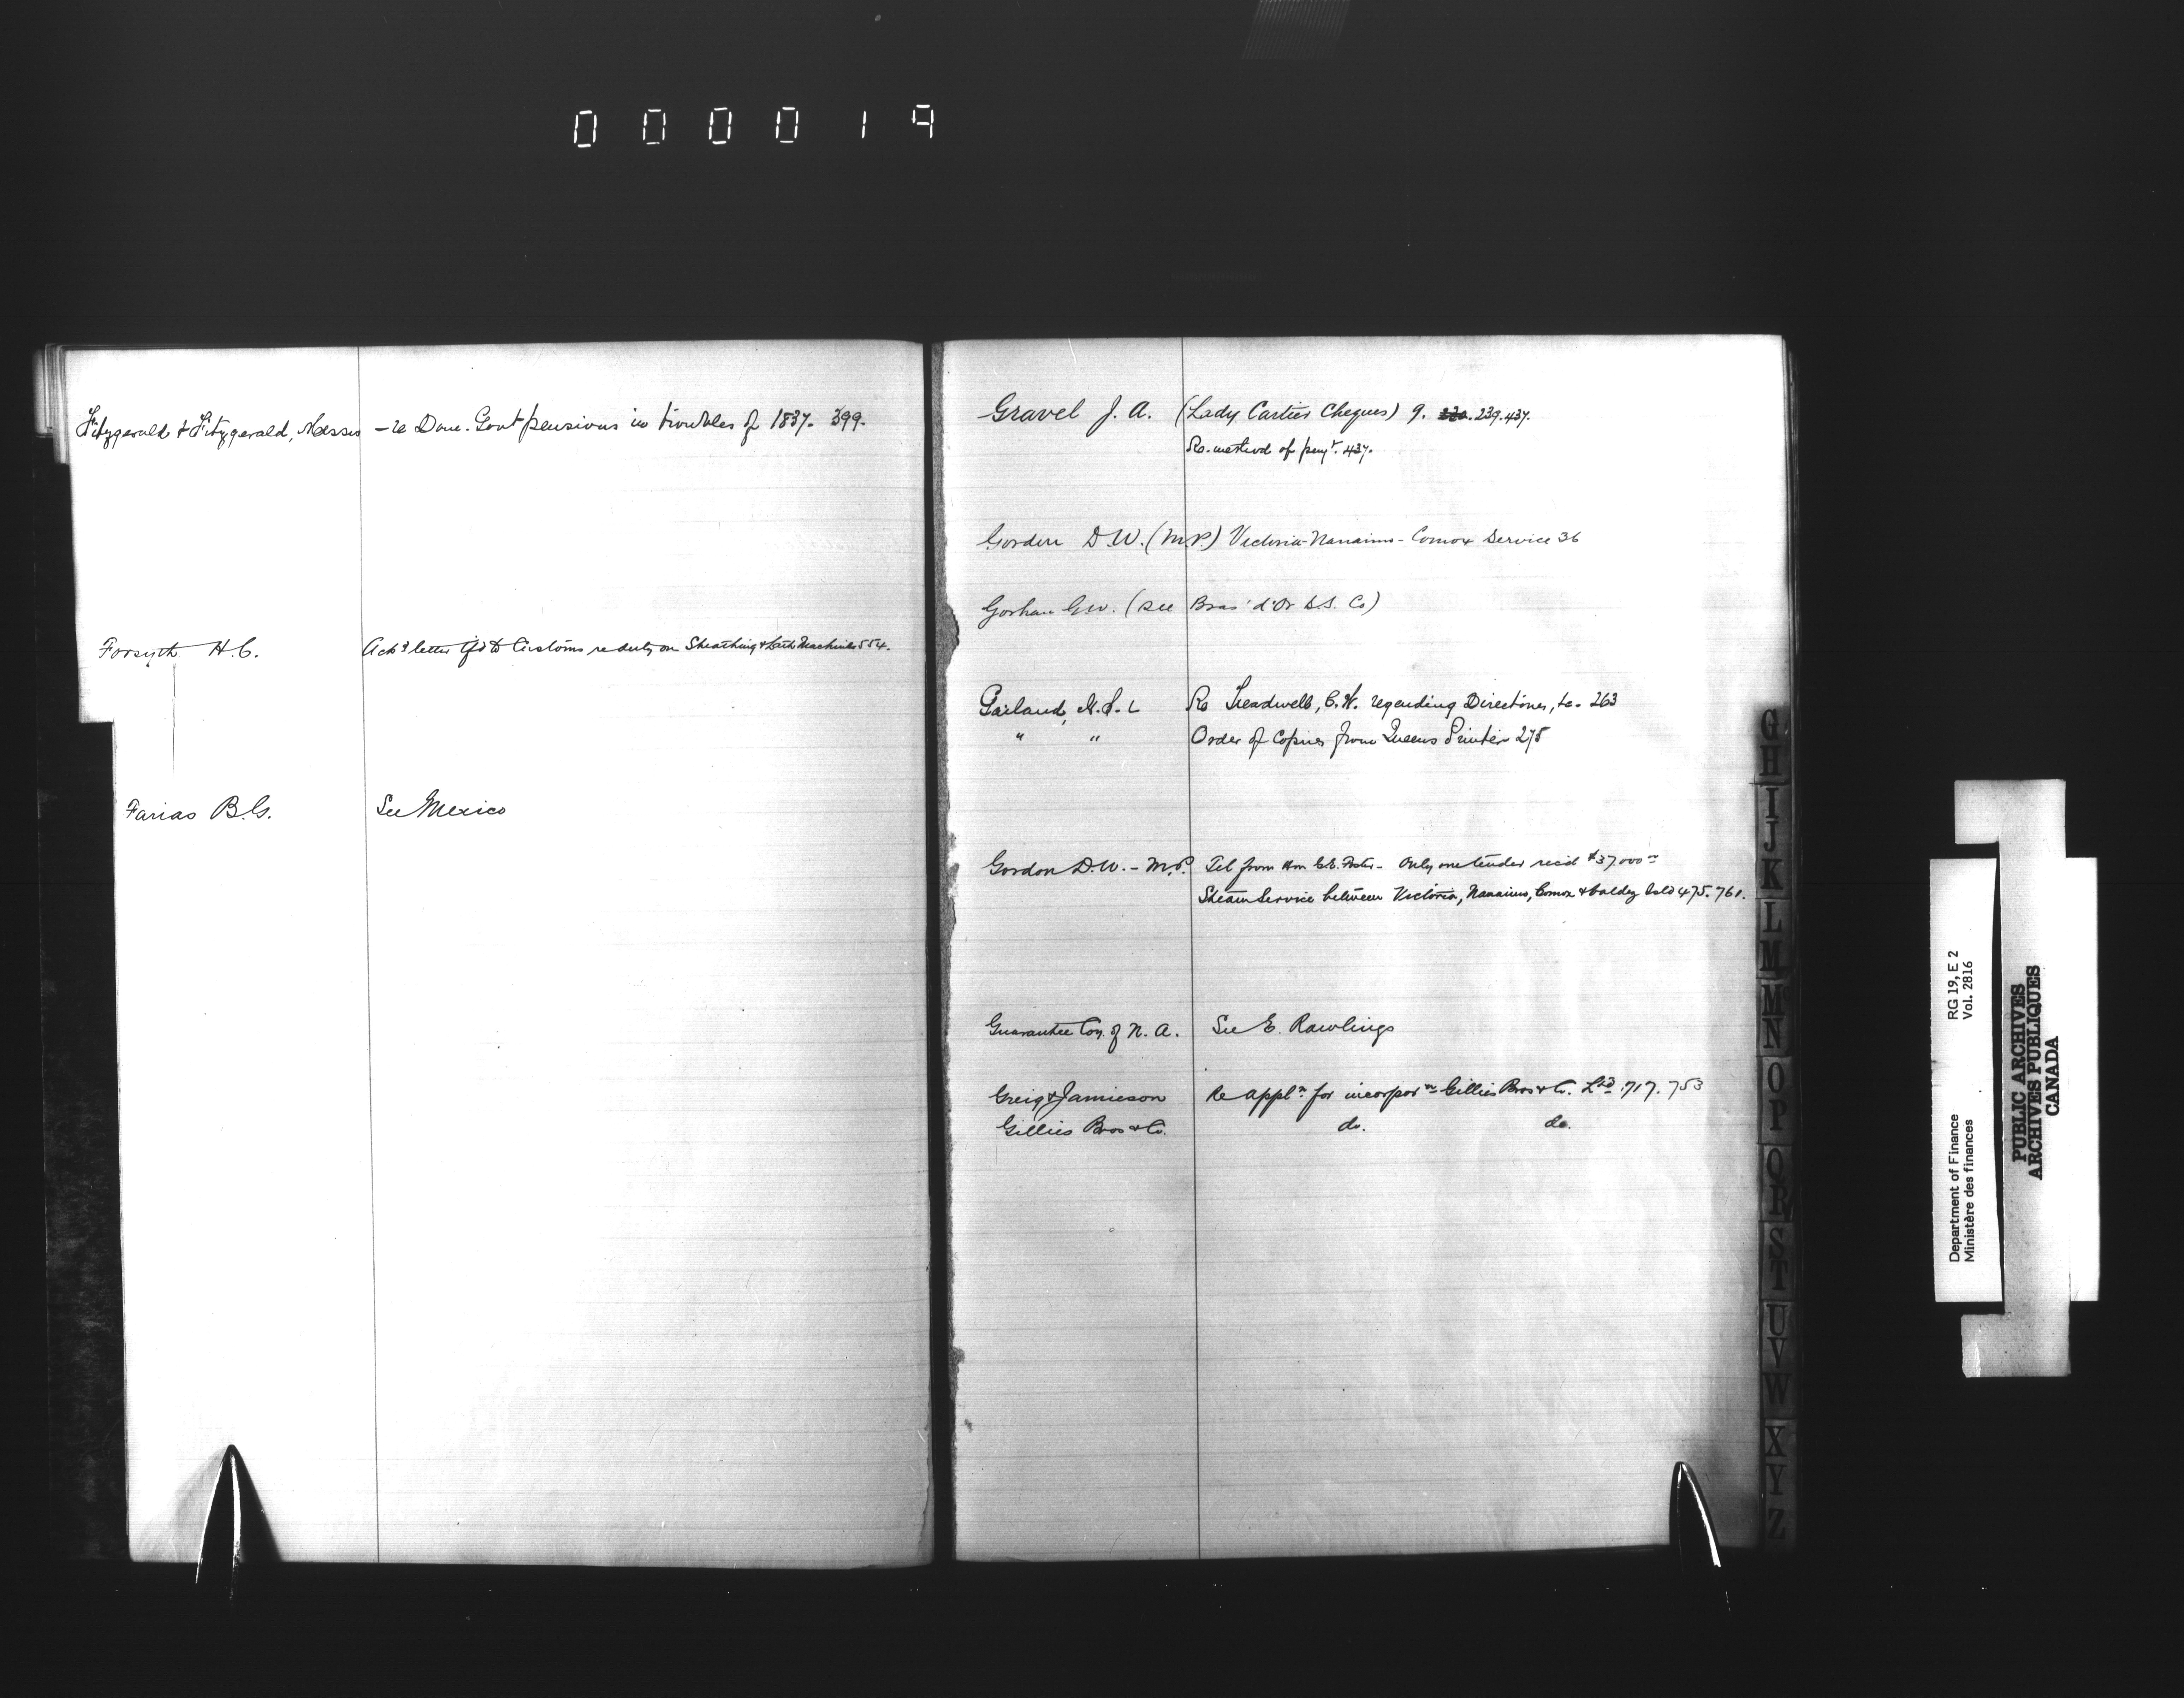 000019
Fitzgerald & Fitzgerald, Messrs - re Dom. Govt pensions in troubles of 1837. 399.
Forsyth H.C. Ackd letter to Customs re duty on Sheathing & Lath Machines 554.
Farias B.G. See Mexico
Gravel J. A. (Lady Cartier Cheques) 9. 239. 437.
Re. method of paymt. 437.
Gordon D.W. (M.P.) Victoria-Nanaimo-Comox Service 36
Gorham G.W. (see Bras d'Or S.S. Co)
Garland, N.S. Re Treadwell, C.W. regarding Directories, &c. 263
" " Order of Copies from Queens Printer 275
Gordon D.W. - M.P. Tel from Hon G.E. Foster - Only one tender rec'd $37,000
Steam Service between Victoria, Nanaimo, Comox & Valdez Isld 475. 761.
Guarantee Coy. of N. A. See E. Rawlings
Greig & Jamieson Re appln. for incorporn Gillies Bros & Co. Ltd. 717. 753
Gillies Bros & Co. do. do.
G
H
I
J
K
L
M
M
N
O
P
Q
R
S
T
U
V
W
X
Y
Z
Department of Finance RG 19, E 2
Ministère des finances Vol. 2816
PUBLIC ARCHIVES
ARCHIVES PUBLIQUES
CANADA